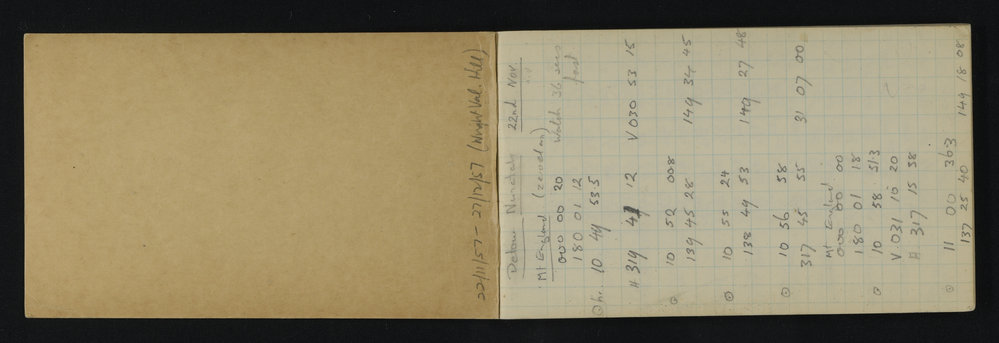 22/11/57 - 27/12/57 (Wright Val. Hill)
Detour Nunatak 22nd Nov.
Mt England (zeroed on) Watch 36 secs
000 00 20 fast
180 01 12
hr. 10 49 53.5
H 319 41 12 V 030 53 15
10 52 00.8
139 45 28 149 34 45
10 55 24
138 49 53 149 27 48
10 56 58
317 45 55 31 07 00
Mt England
000 00 00
180 01 18
10 58 51.3
V. 031 10 20
H 317 15 38
11 00 36.3
137 25 40 149 18 08